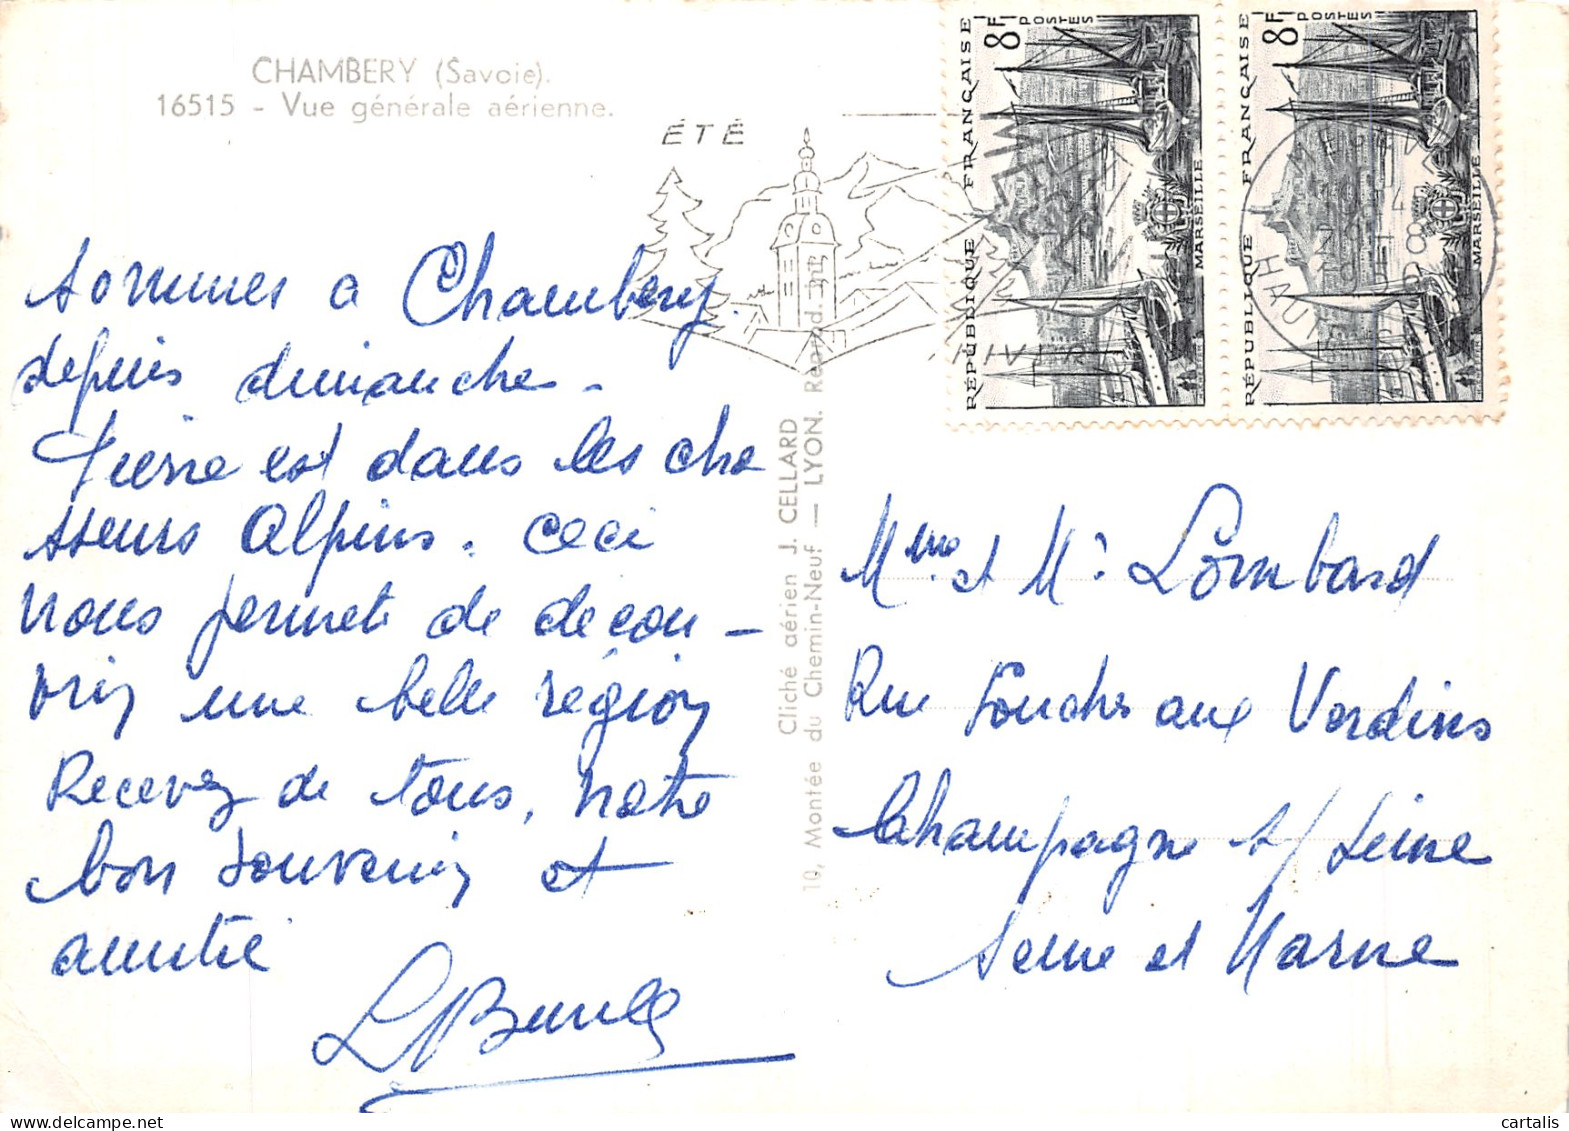 CHAMBERY (Savoie).
16515 - Vue générale aérienne.
ÉTÉ
8F POSTES
RÉPUBLIQUE FRANÇAISE
MARSEILLE
8F POSTES
RÉPUBLIQUE FRANÇAISE
MARSEILLE
MEGEVE
HIVER
MEGEVE
HAUTE
sommes a Chambery.
depuis dimanche -
Pierre est dans les cha
sseurs Alpins. Ceci
nous permet de decou -
vrir une belle région
Recevez de tous, notre
bon souvenir et
amitié
Cliché aérien J. CELLARD
10, Montée du Chemin-Neuf — LYON. Reprod. int.
Mme et Mr Lombard
Rue Souches aux Verdins
Champagne s/ Seine
Seine et Marne
cartalis